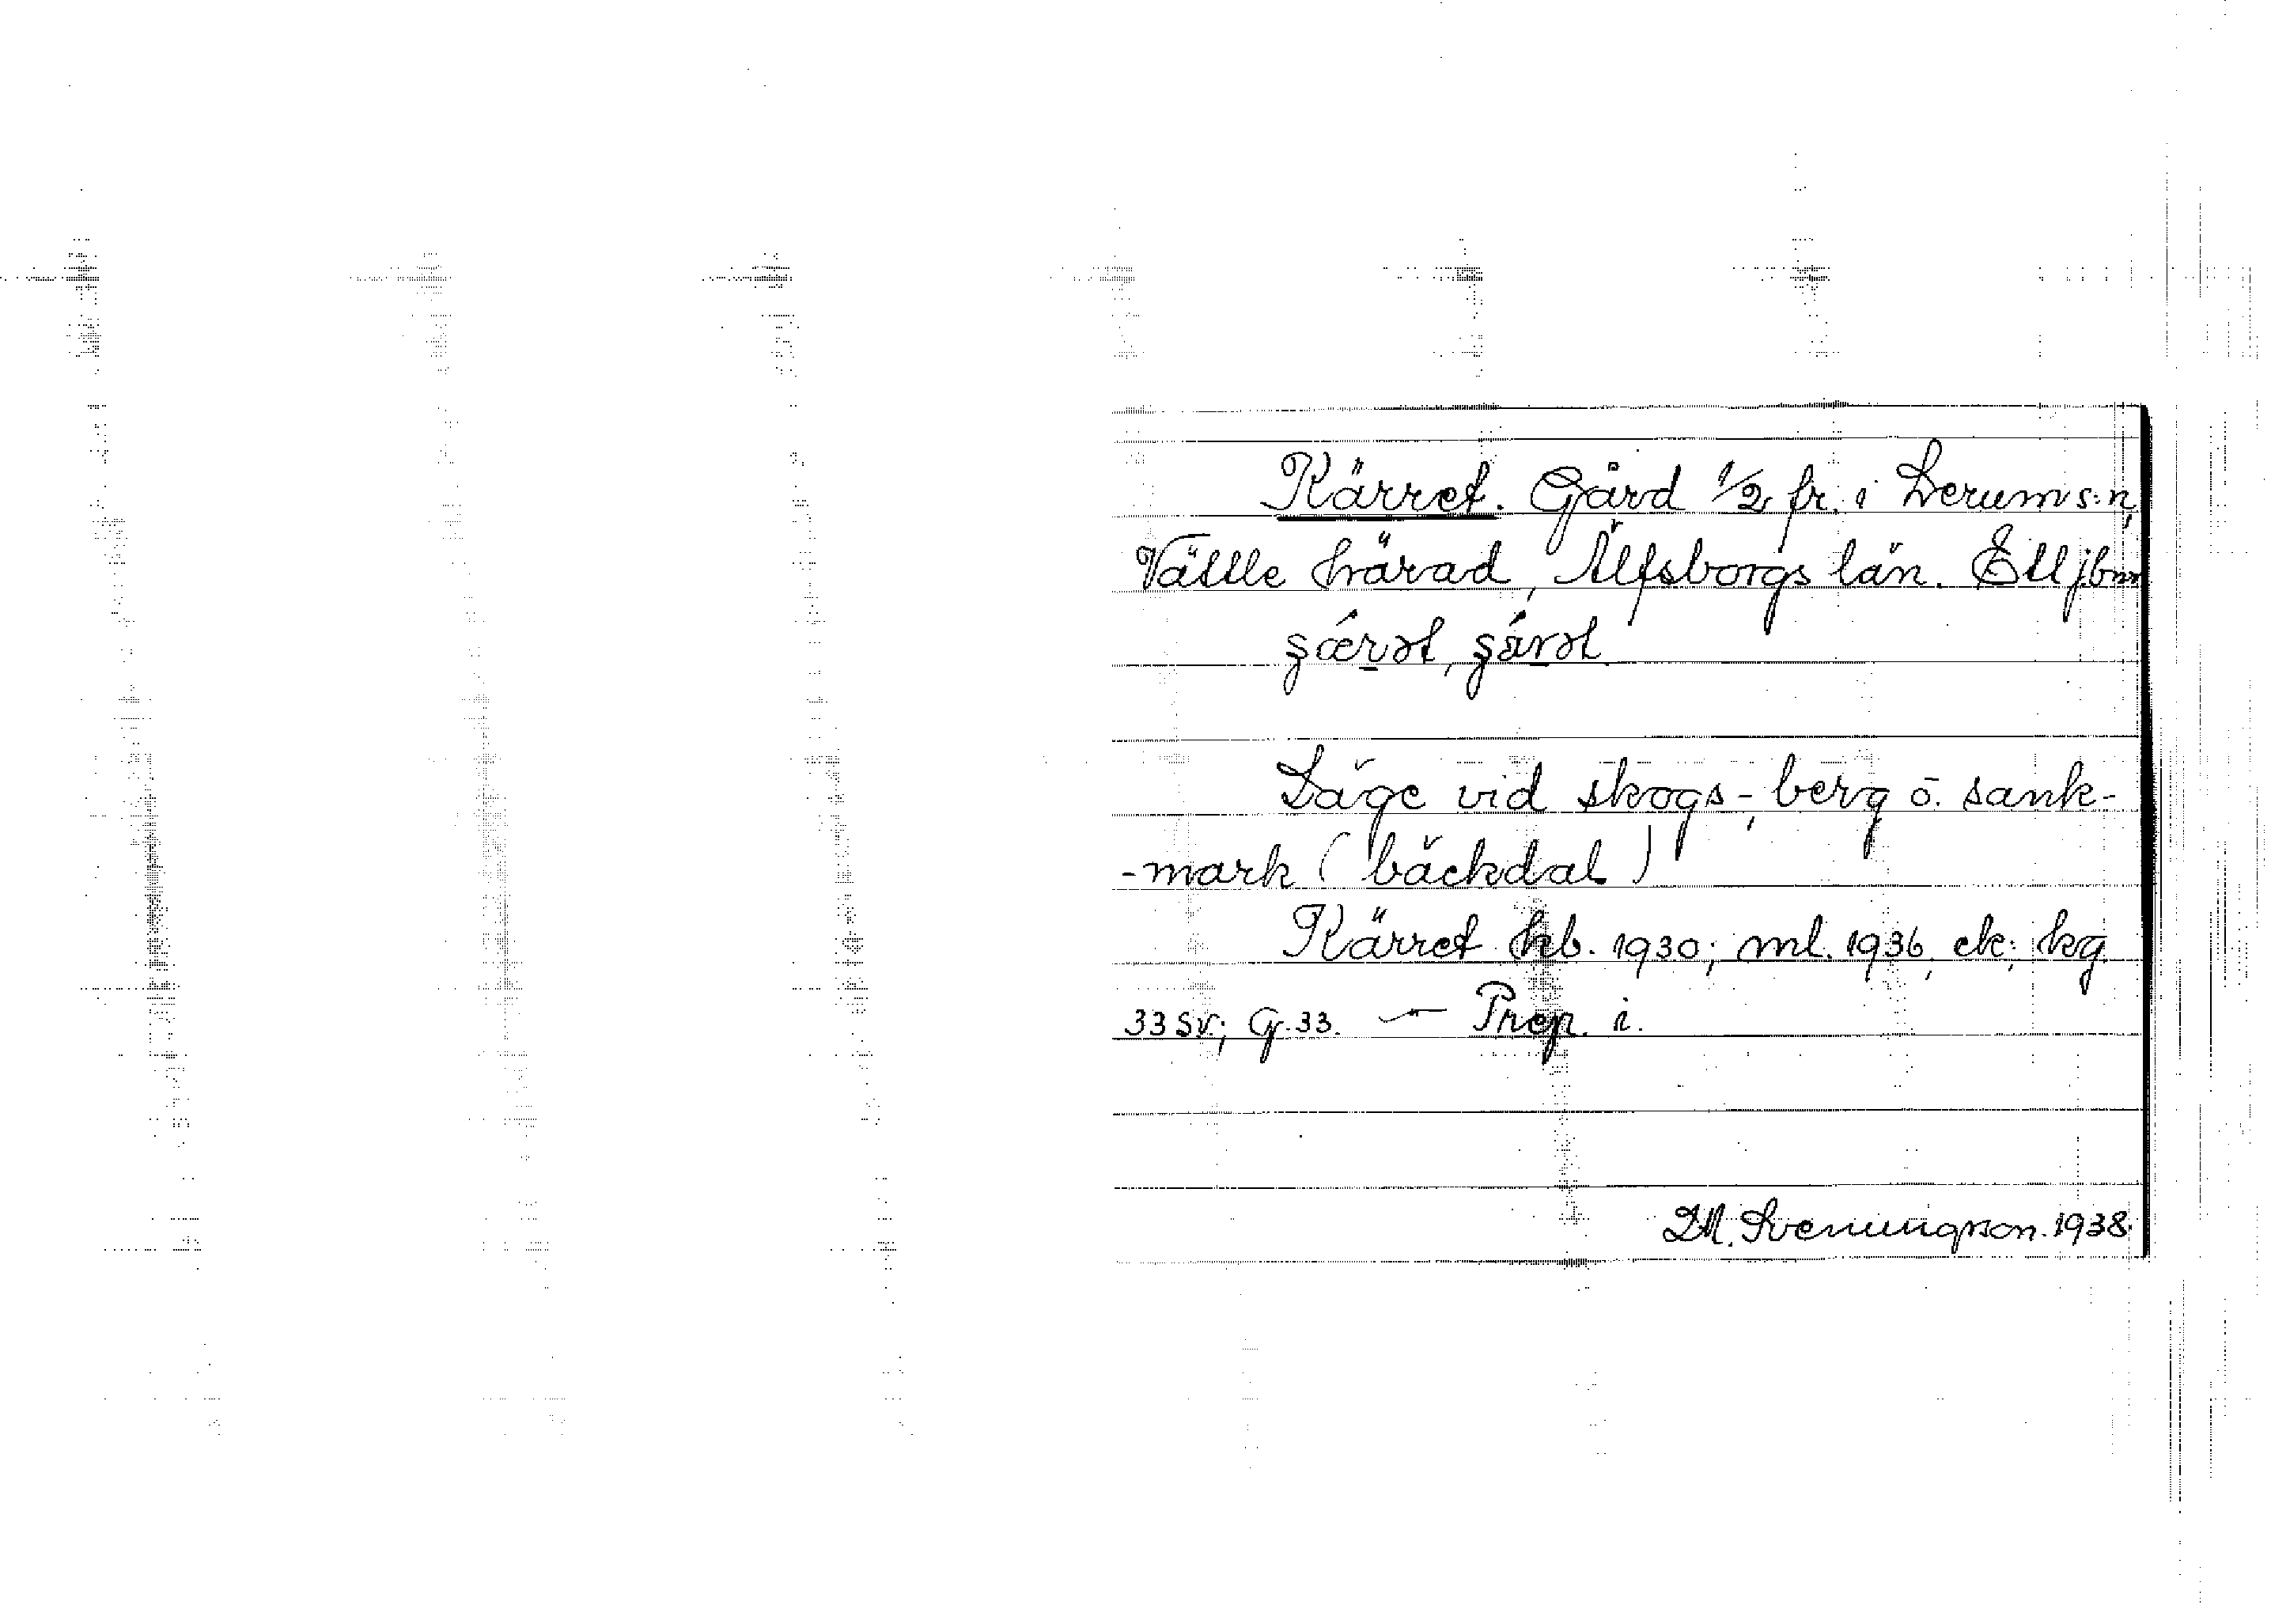 Kärret. Gård 1/2 fr. i Lerums s:n,
Vättle härad, Älfsborgs län. Ett jbnr
Läge vid skogs-, berg o. sank-
-mark (bäckdal)
Kärret hb. 1930; ml. 1936, ek; kg.
33 Sv; G. 33. — Prep. i.
Svenungson. 1938.